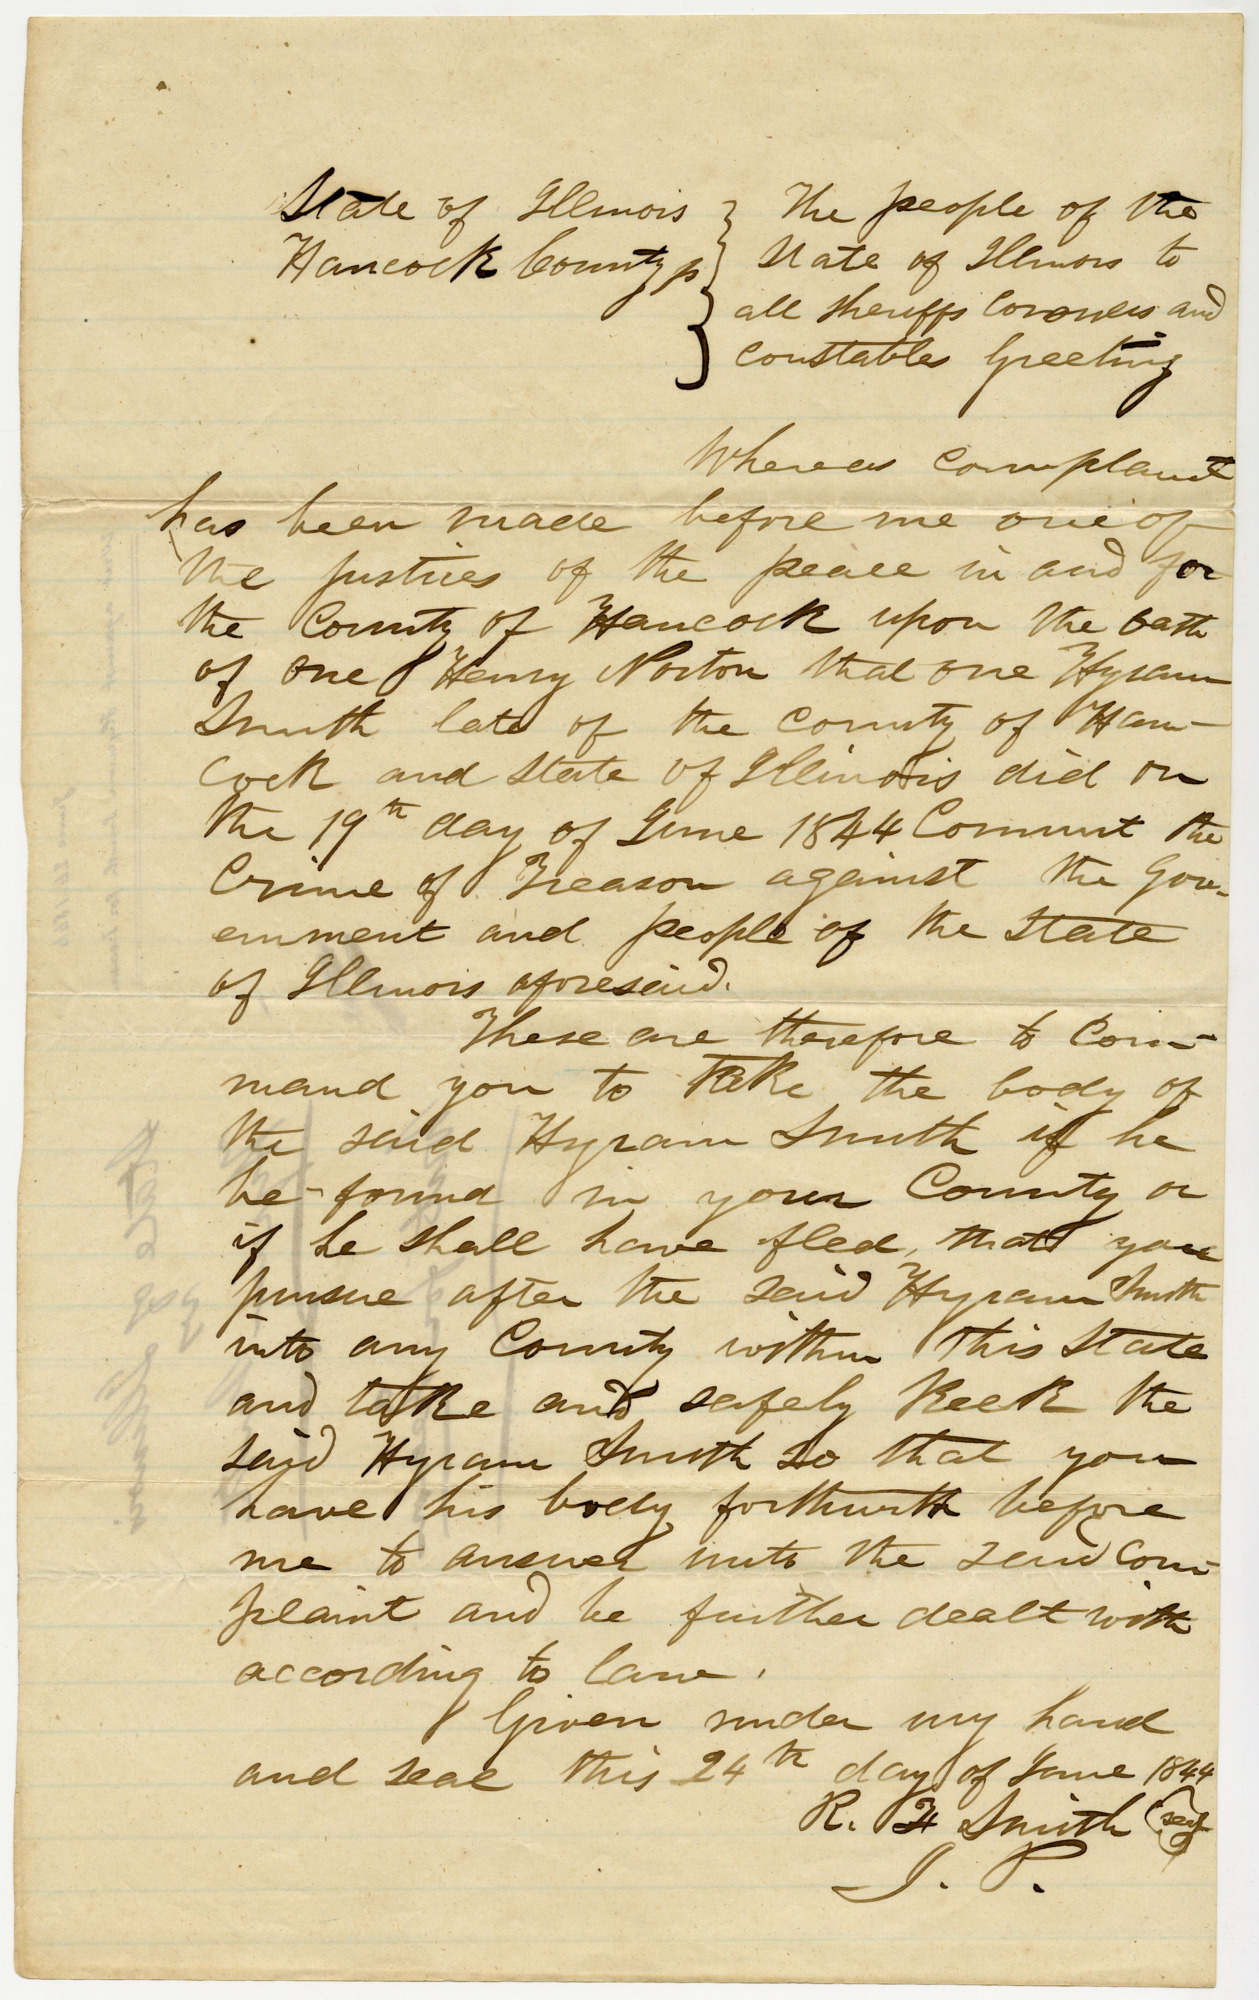 State of Illinois } The people of the
Hancock County ss } State of Illinois to
all sheriffs Coroners and
Constables Greeting
Whereas complaint
has been made before me one of
the justices of the peace in and for
the County of Hancock upon the oath
of one Henry Norton that one Hyram
Smith late of the County of Han-
cock and State of Illinois did on
the 19th day of June 1844 Commit the
Crime of Treason against the Gov-
ernment and people of the State
of Illinois aforesaid.
These are therefore to Com-
mand you to take the body of
the said Hyram Smith if he
be found in your County or
if he shall have fled, that you
pursue after the said Hyram Smith
into any County within this State
and take and safely Keek the
said Hyram Smith so that you
have his body forthwith before
me to answer unto the said Com-
plaint and be further dealt with
according to law.
Given under my hand
and seal this 24th day of June 1844
R. F Smith (seal)
J. P.